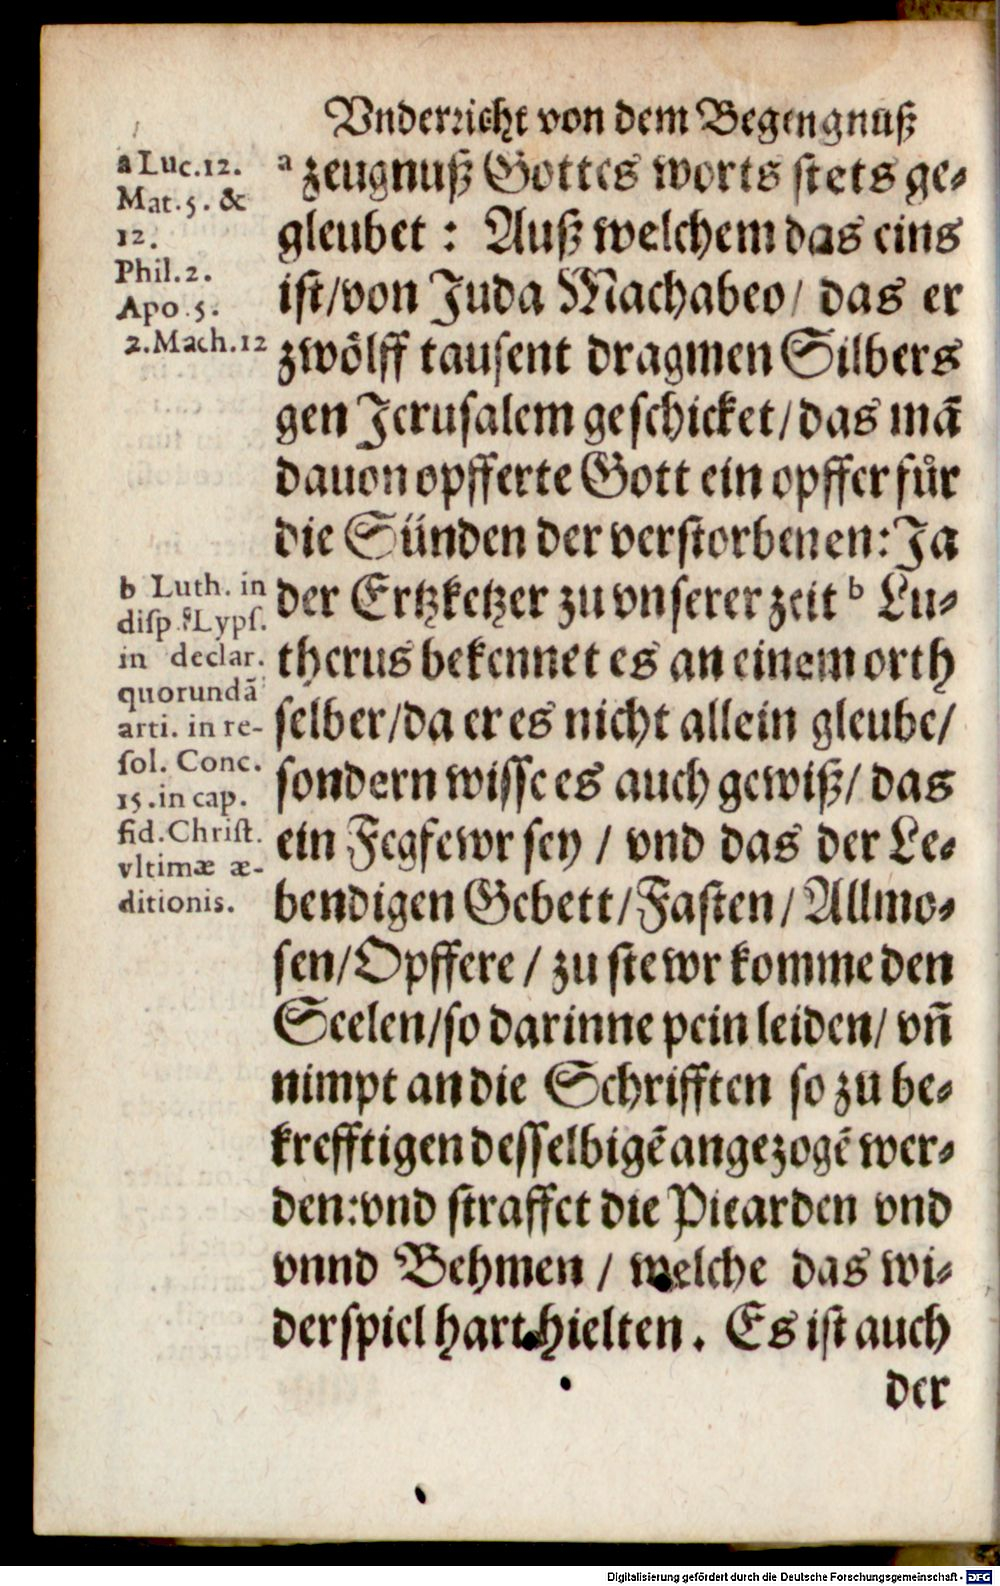 Vnderricht von dem Begengnuß
a Luc.12.
Mat.5. &
12.
Phil.2.
Apo.5.
2.Mach.12
ᵃ zeugnuß Gottes worts stets ge-
gleubet : Auß welchem das eins
ist/von Juda Machabeo/ das er
zwoͤlff tausent dragmen Silbers
gen Jerusalem geschicket/das mā
dauon opfferte Gott ein opffer fuͤr
die Sünden der verstorbenen: Ja
der Ertzketzer zu vnserer zeit ᵇ Lu-
therus bekennet es an einem orth
selber/da er es nicht allein gleube/
sondern wisse es auch gewiß/ das
ein Fegfewr sey / vnd das der Le-
bendigen Gebett/Fasten/Allmo-
sen/Opffere / zu stewr komme den
Seelen/so darinne pein leiden/ vñ
nimpt an die Schrifften so zu be-
krefftigen desselbigē angezogē wer-
den:vnd straffet die Picarden vnd
vnnd Behmen / welche das wi-
derspiel hart hielten. Es ist auch
der
b Luth. in
disp. Lypſ.
in declar.
quorundā
arti. in re-
ſol. Conc.
15.in cap.
fid.Chriſt.
vltimæ æ-
ditionis.
Digitalisierung gefördert durch die Deutsche Forschungsgemeinschaft - DFG